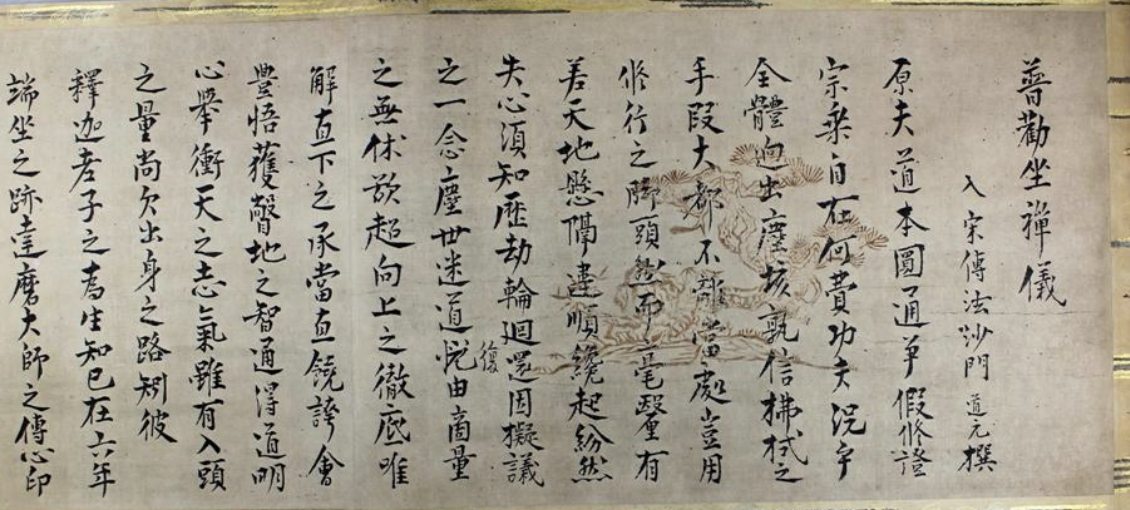 普勸坐禪儀
入宋傳法沙門 道元 撰
原夫道本圓通爭假修證
宗乘自在何費功夫況乎
全體迥出塵埃孰信拂拭之
手段大都不離當處豈用
修行之脚頭然而毫釐有
差天地懸隔違順纔起紛然
失心須知歷劫輪迴還因擬議
復
之一念塵世迷道悅由商量
之無休欲超向上之徹底唯
解直下之承當直饒誇會
豐悟獲瞥地之智通得道明
心擧衝天之志氣雖有入頭
之量尚欠出身之路矧彼
釋迦老子之爲生知已在六年
端坐之跡達磨大師之傳心印